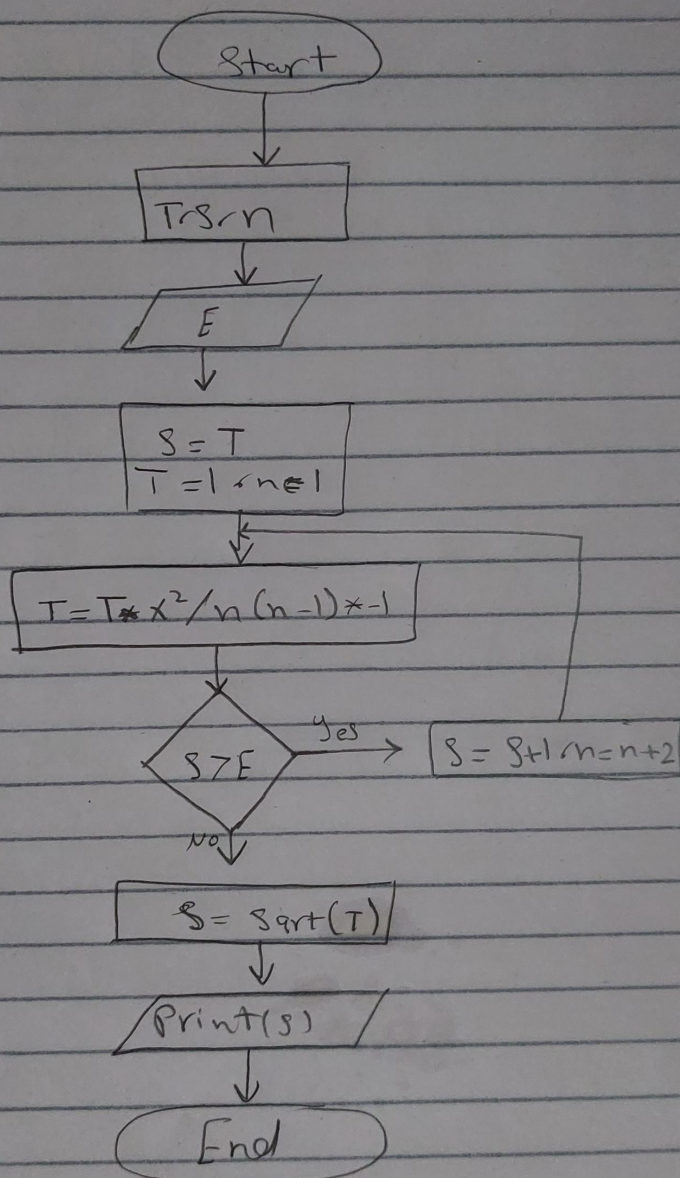 Start
T, S, n
E
S = T
T = 1, n = 1
T = T * x²/n (n-1) * -1
S > E
Yes
S = S+1, n = n+2
No
S = Sqrt(T)
Print(S)
End